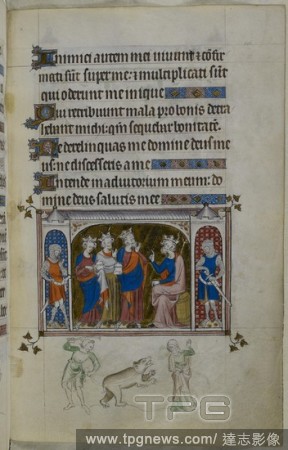 Inimici autem mei uiuunt & cōfir
mati sūt super me: & multiplicati sūt
qui oderunt me inique
Qui retribuunt mala pro bonis detra
hebant michi: qm̄ sequebar bonitatē.
Ne derelinquas me domine deus me
us: ne discesseris a me
Intende in adiutorium meum: do
mine deus salutis mee
TPG
www.tpgnews.com/ 達志影像